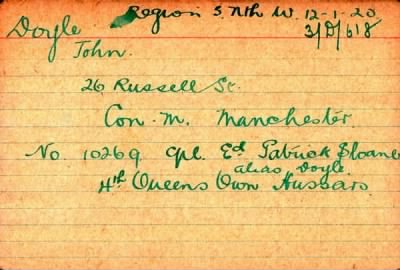 Region 5. Nth W. 12-1-20
Doyle 3/D/618
John.
26 Russell St.
Con. M. Manchester.
No. 10269 Cpl. Ed. Patrick Sloane
alias Doyle
4th Queens Own Hussars.